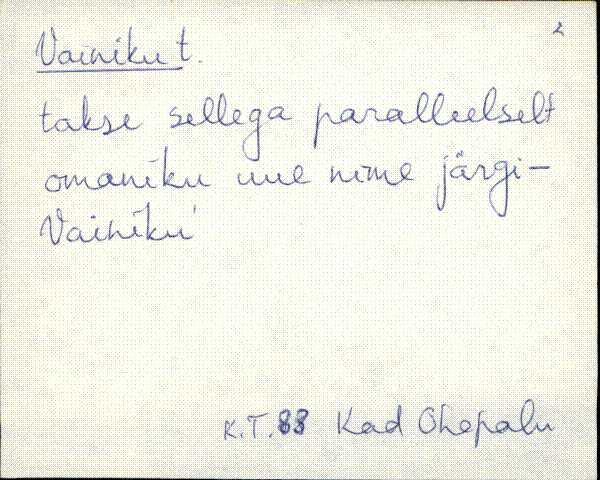 2
Vainiku t.
takse sellega paralleelselt
omaniku uue nime järgi -
Vainiku
K.T. 88 Kad Ohepalu